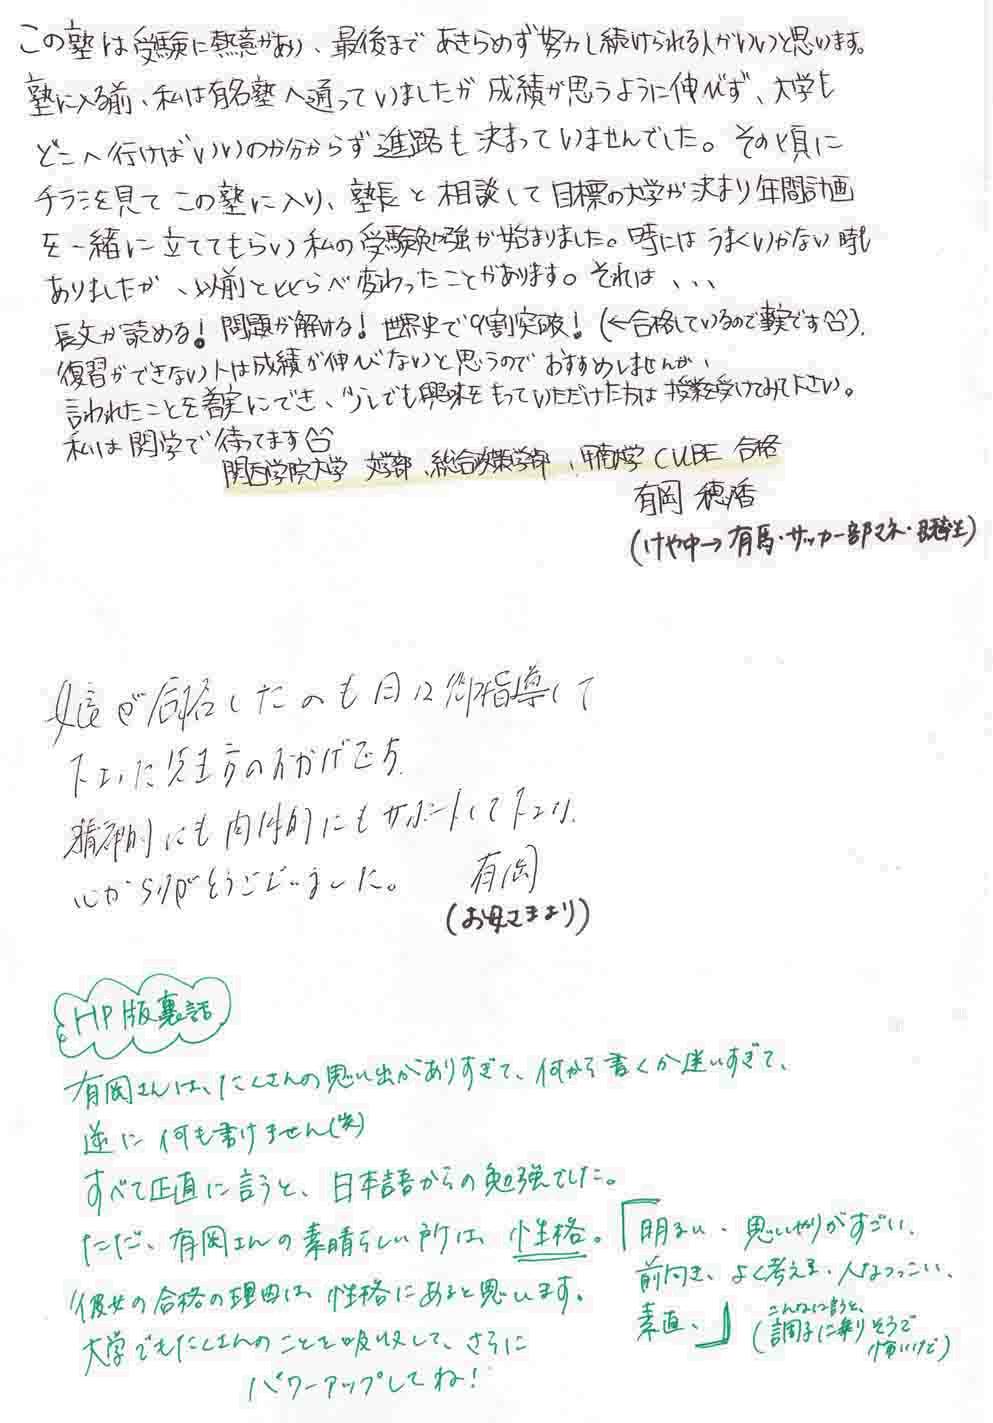 この塾は受験に熱意があり、最後まであきらめず努力し続けられる人がいいと思います。
塾に入る前、私は有名塾へ通っていましたが成績が思うように伸びず、大学も
どこへ行けばいいのか分からず進路も決まっていませんでした。その頃に
チラシを見てこの塾に入り、塾長と相談して目標の大学が決まり年間計画
を一緒に立ててもらい私の受験勉強が始まりました。時にはうまくいかない時も
ありましたが、以前とくらべ変わったことがあります。それは、、、
長文が読める!問題が解ける!世界史で9割突破!(←合格しているので事実です^^).
復習ができない人は成績が伸びないと思うのでおすすめしませんが、
言われたことを着実にでき、少しでも興味をもっていただけた方は授業を受けてみて下さい。
私は関学で待ってます^^
関西学院大学 文学部、総合政策学部、甲南大学 CUBE 合格
有岡 穂香
(けや中→有馬・サッカー部マネ・既卒生)
娘が合格したのも日々御指導して
下さった先生方のおかげです.
精神的にも肉体的にもサポートして下さり、
心からありがとうございました。 有岡
(お母さまより)
HP版裏話
有岡さんは、たくさんの思い出がありすぎて、何から書くか迷いすぎて、
逆に何も書けません(笑)
すべて正直に言うと、日本語からの勉強でした。
ただ、有岡さんの素晴らしい所は、性格。「明るい、思いやりがすごい、
前向き、よく考える、人なつっこい、
素直、」(こんなに言うと、調子に乗りそうで怖いけど)
彼女の合格の理由は、性格にあると思います。
大学でもたくさんのことを吸収して、さらに
パワーアップしてね!